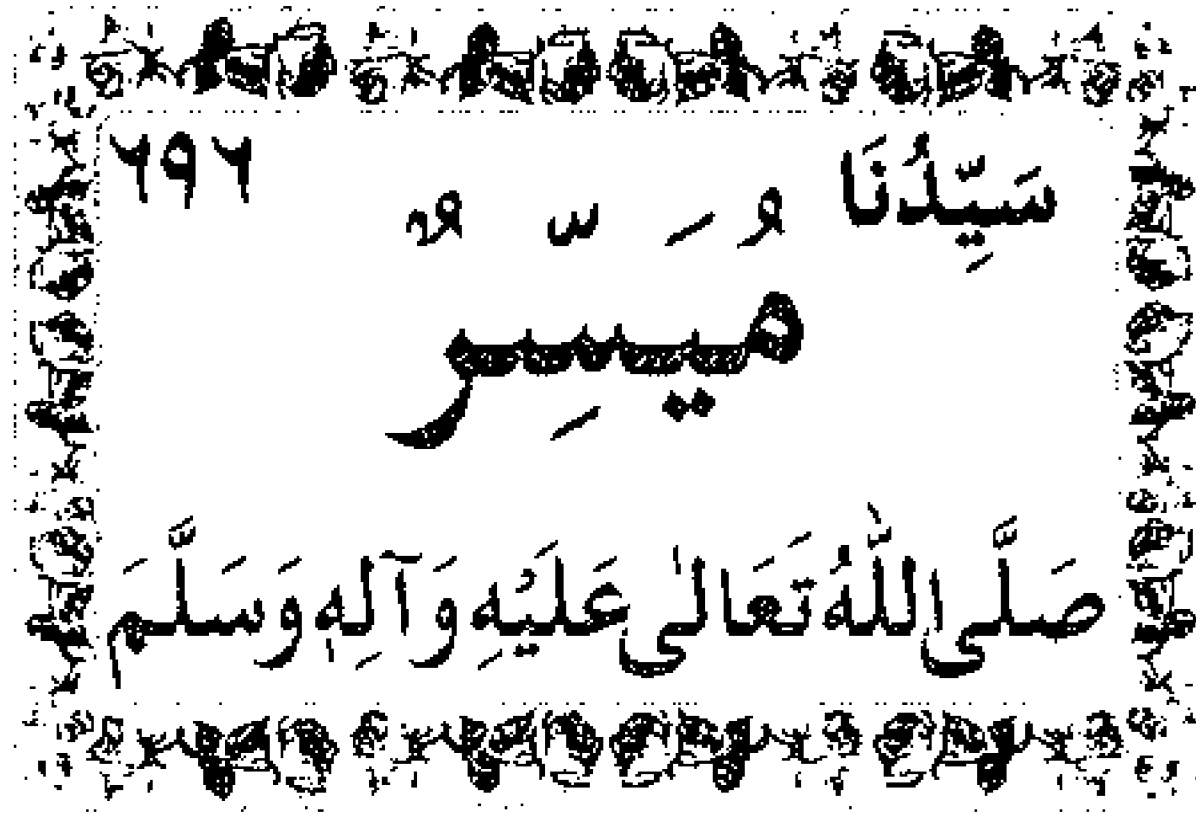 سَيِّدُنَا ٦٩٦
مُيَسِّرٌ
صَلَّى اللّٰهُ تَعَالىٰ عَلَيْهِ وَآلِهٖ وَسَلَّمَ